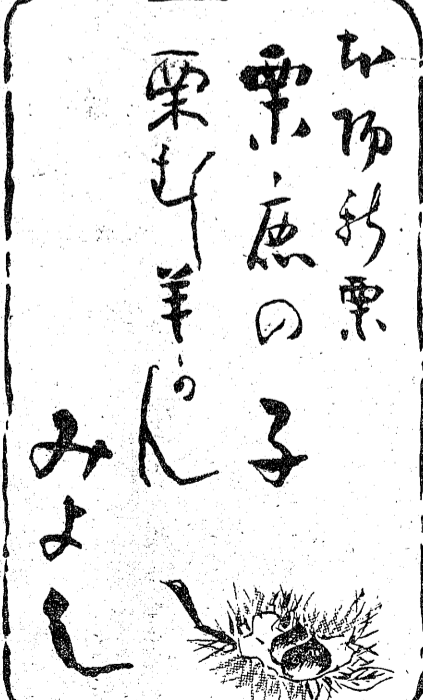 本場新栗
栗鹿の子
栗むし羊かん
みよし